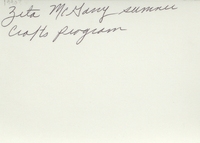 Zeta McGary summer
Crafts program